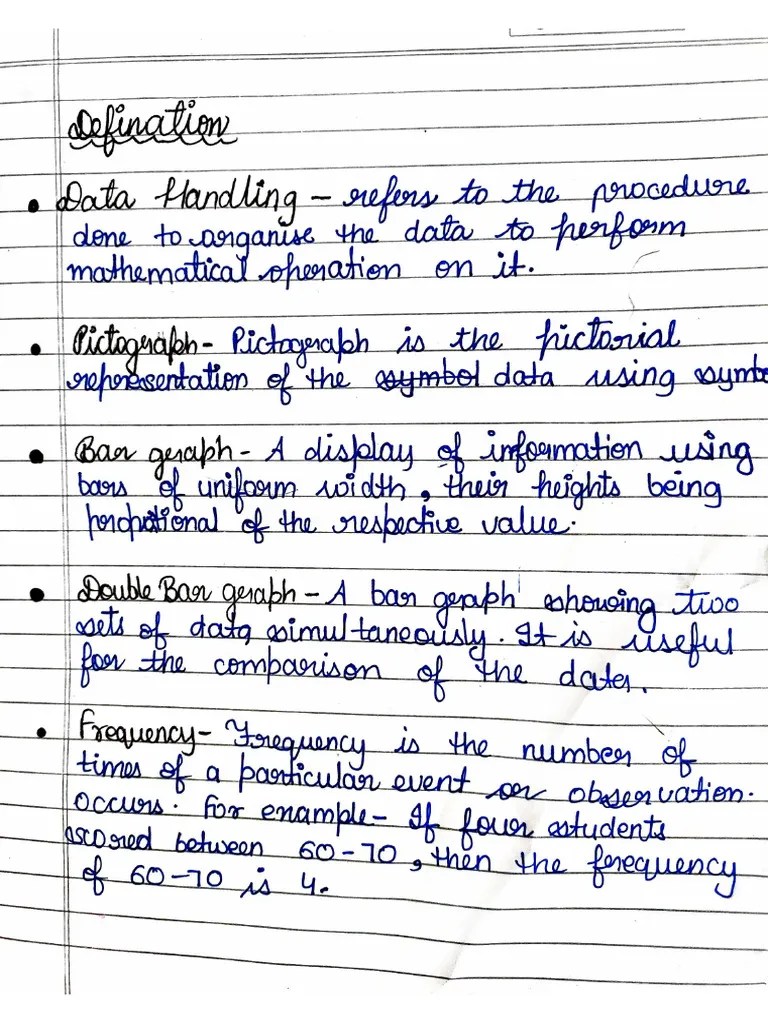 Defination
• Data Handling – refers to the procedure
done to organise the data to perform
mathematical operation on it.
• Pictograph - Pictograph is the pictorial
representation of the symbol data using symb
• Bar graph - A display of information using
bars of uniform width, their heights being
of the respective value.
• Double Bar graph – A bar graph showing two
sets of data simultaneously. It is useful
for the comparison of the
• Frequency - Frequency is the number of
times of a particular event or observation.
occurs. For example - If four students
scored between 60-70, then the frequency
of 60-70 is 4.